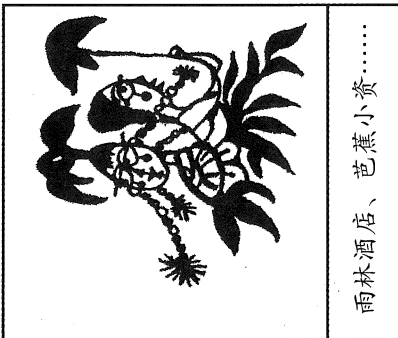 雨林酒店、芭蕉小资……